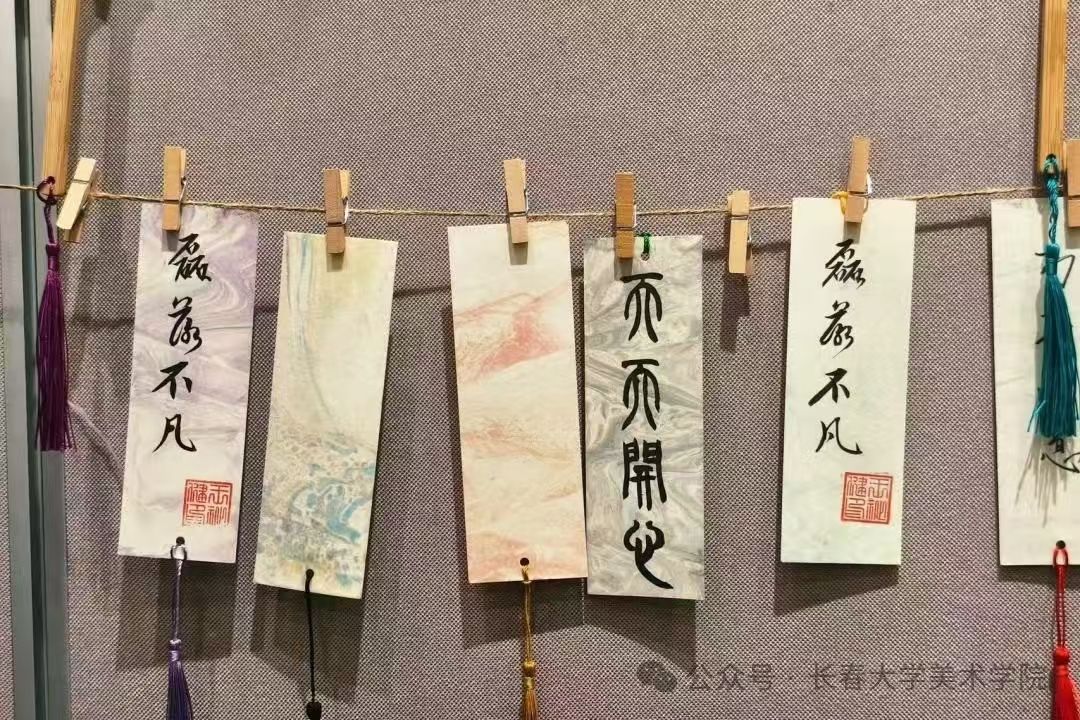 磊落不凡
天天開心
磊落不凡
公众号 长春大学美术学院